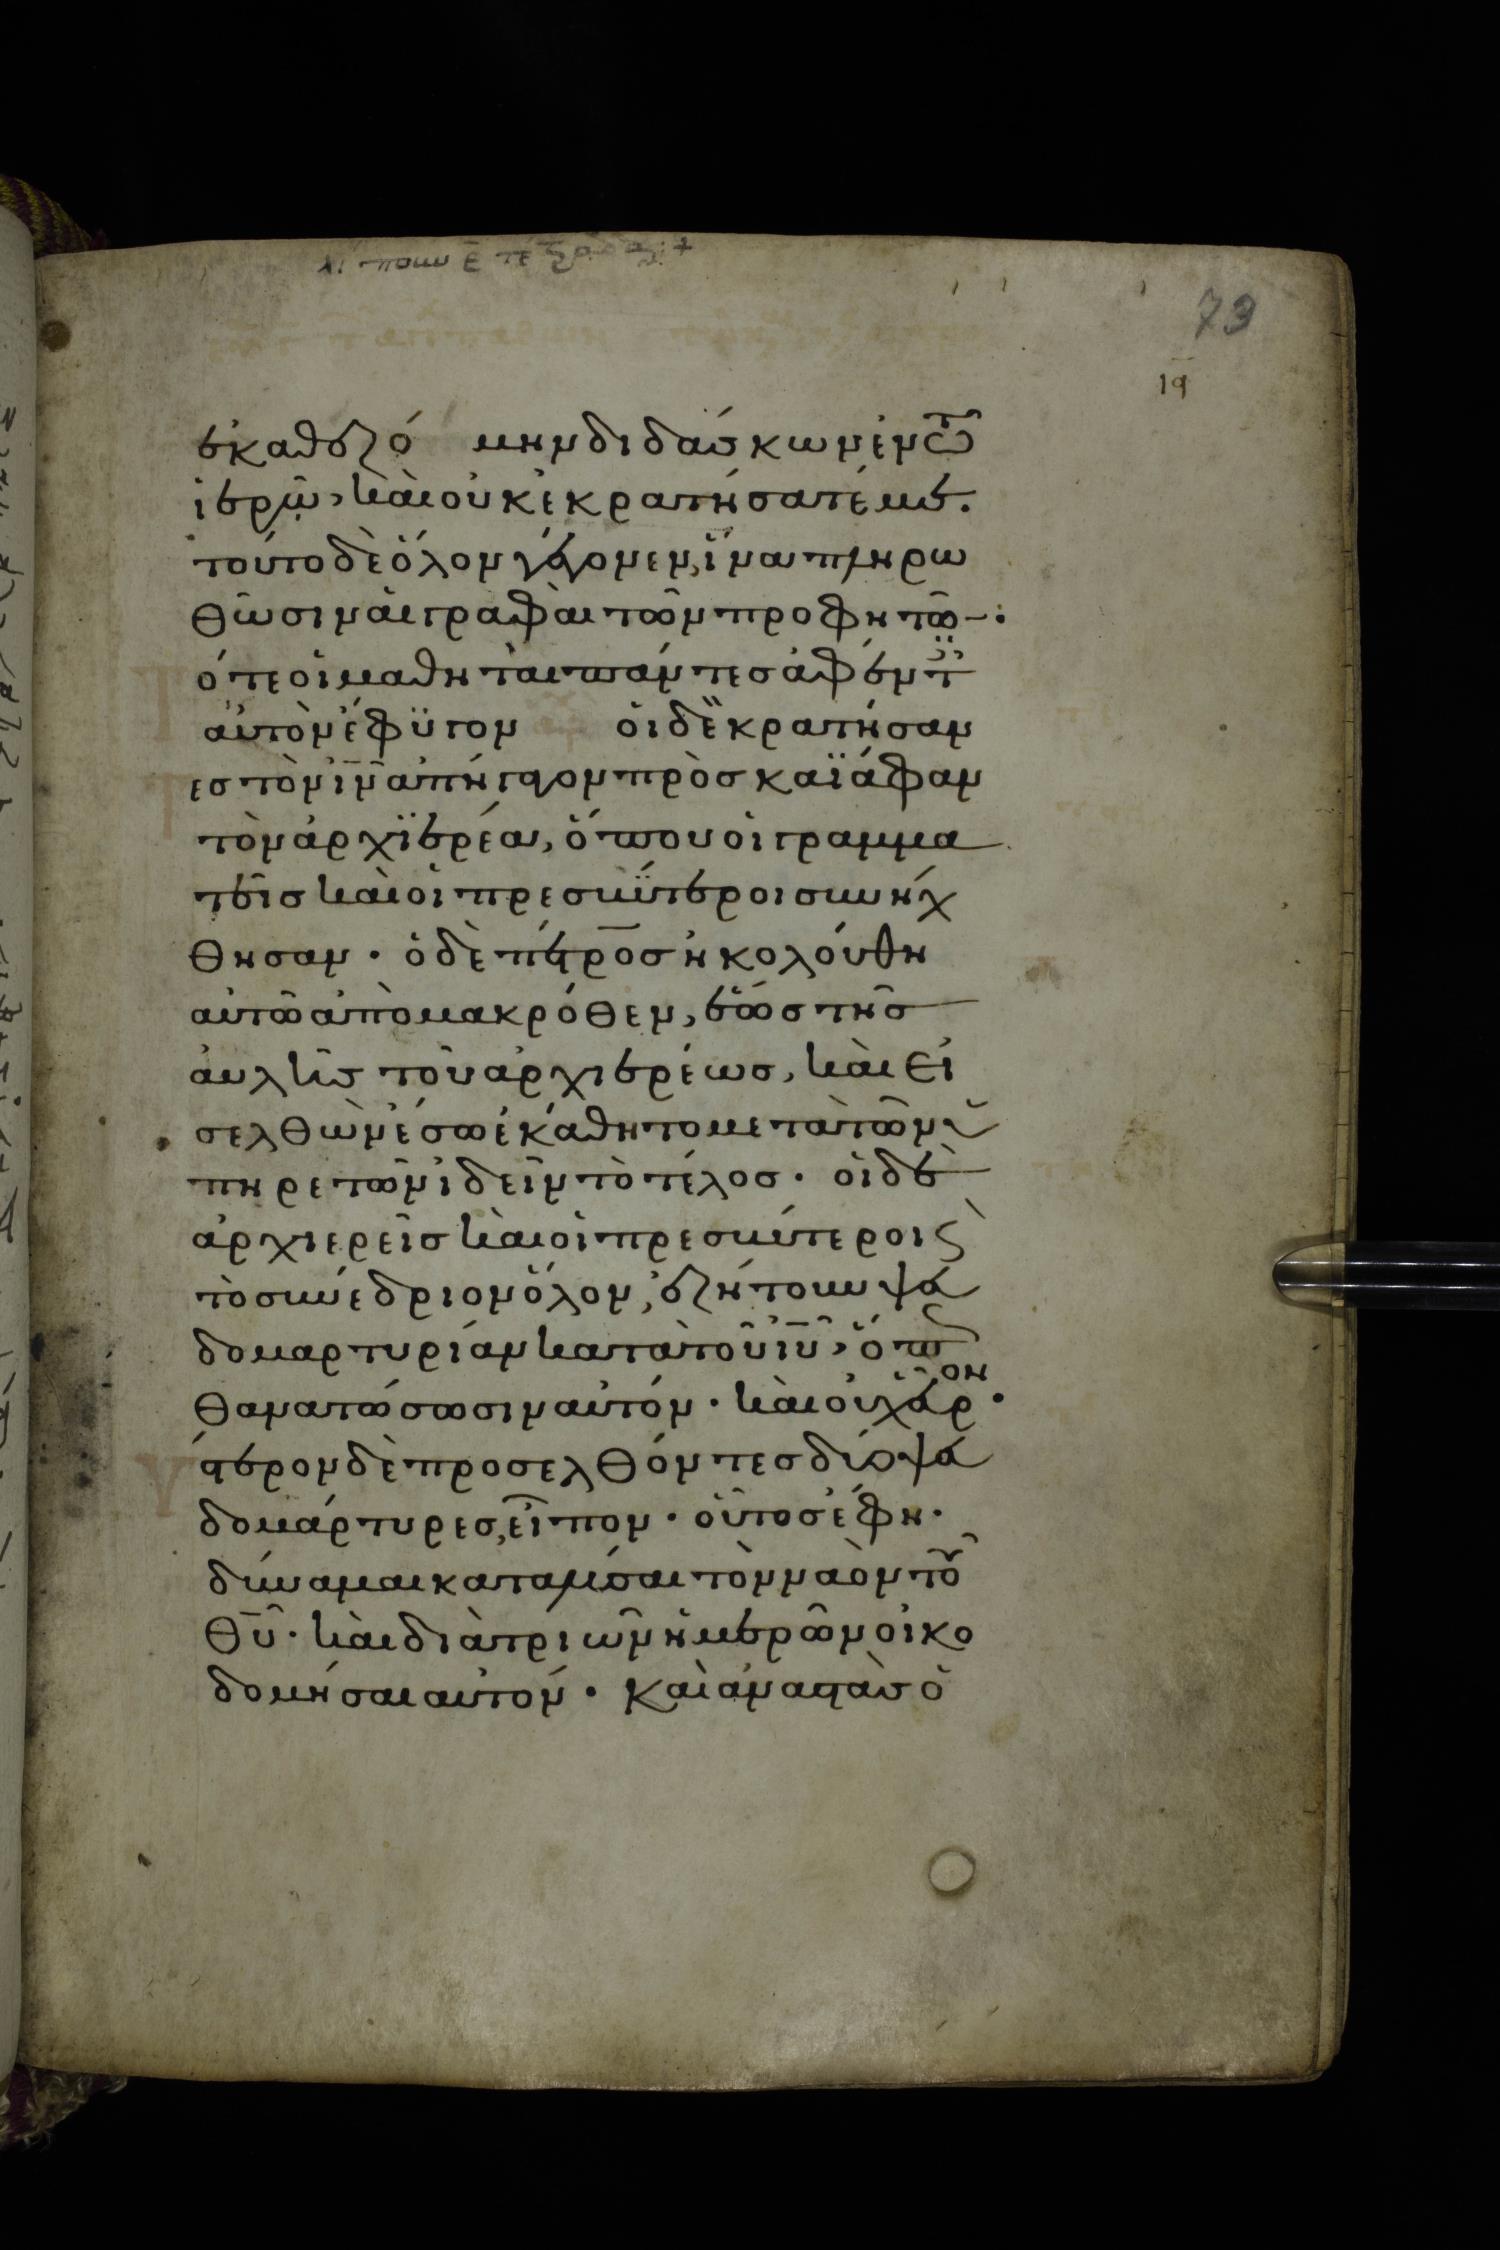 73
ιϛ
ἐκαθεζό μην διδάσκων ἐν τῶ
ἱερῶ, καὶ οὐκ ἐκρατήσατέ με.
τοῦτο δὲ ὅλον γέγονεν, ἵνα πληρω
θῶσιν αἱ γραφαὶ τῶν προφητῶ–·
ότε οἱ μαθηταὶ πάντες ἀφέντ
αὐτὸν ἔφϋγον οἱ δὲ κρατήσαν
ες τὸν ιν ἀπήγαγον πρὸς καϊάφαν
τὸν ἀρχϊερέα, ὅπου οἱ γραμμα
τεῖς καὶ οἱ πρεσβϋτεροι συνήχ
θησαν · ὁ δὲ πέτρος ἠκολούθη
αὐτῶ ἀπὸ μακρόθεν, ἕως τῆς
αὐλῆς τοῦ ἀρχιερέως, καὶ εἰ
σελθὼν ἔσω ἐκάθητο μετὰ τῶν ὑ
πηρετῶν ἰδεῖν τὸ τέλος · οἱ δὲ
ἀρχιερεῖς καὶ οἱ πρεσβύτεροι ϛ
τὸ συνέδριον ὅλον, ἐζήτουν ψά
δομαρτυρίαν κατὰ τοῦ ιυ, ὅπως
θανατώσωσιν αὐτόν · καὶ οὐχ εὗρον ·
στερον δὲ προσελθόντες δύο ψά
δομάρτυρες, εἶπον · οὗτος ἔφη ·
δύναμαι καταλύσαι τὸν ναὸν τοῦ
θυ · καὶ διὰ τριῶν ἡμερῶν οἰκο
δομήσαι αὐτόν · καὶ ἀναστὰς ὁ